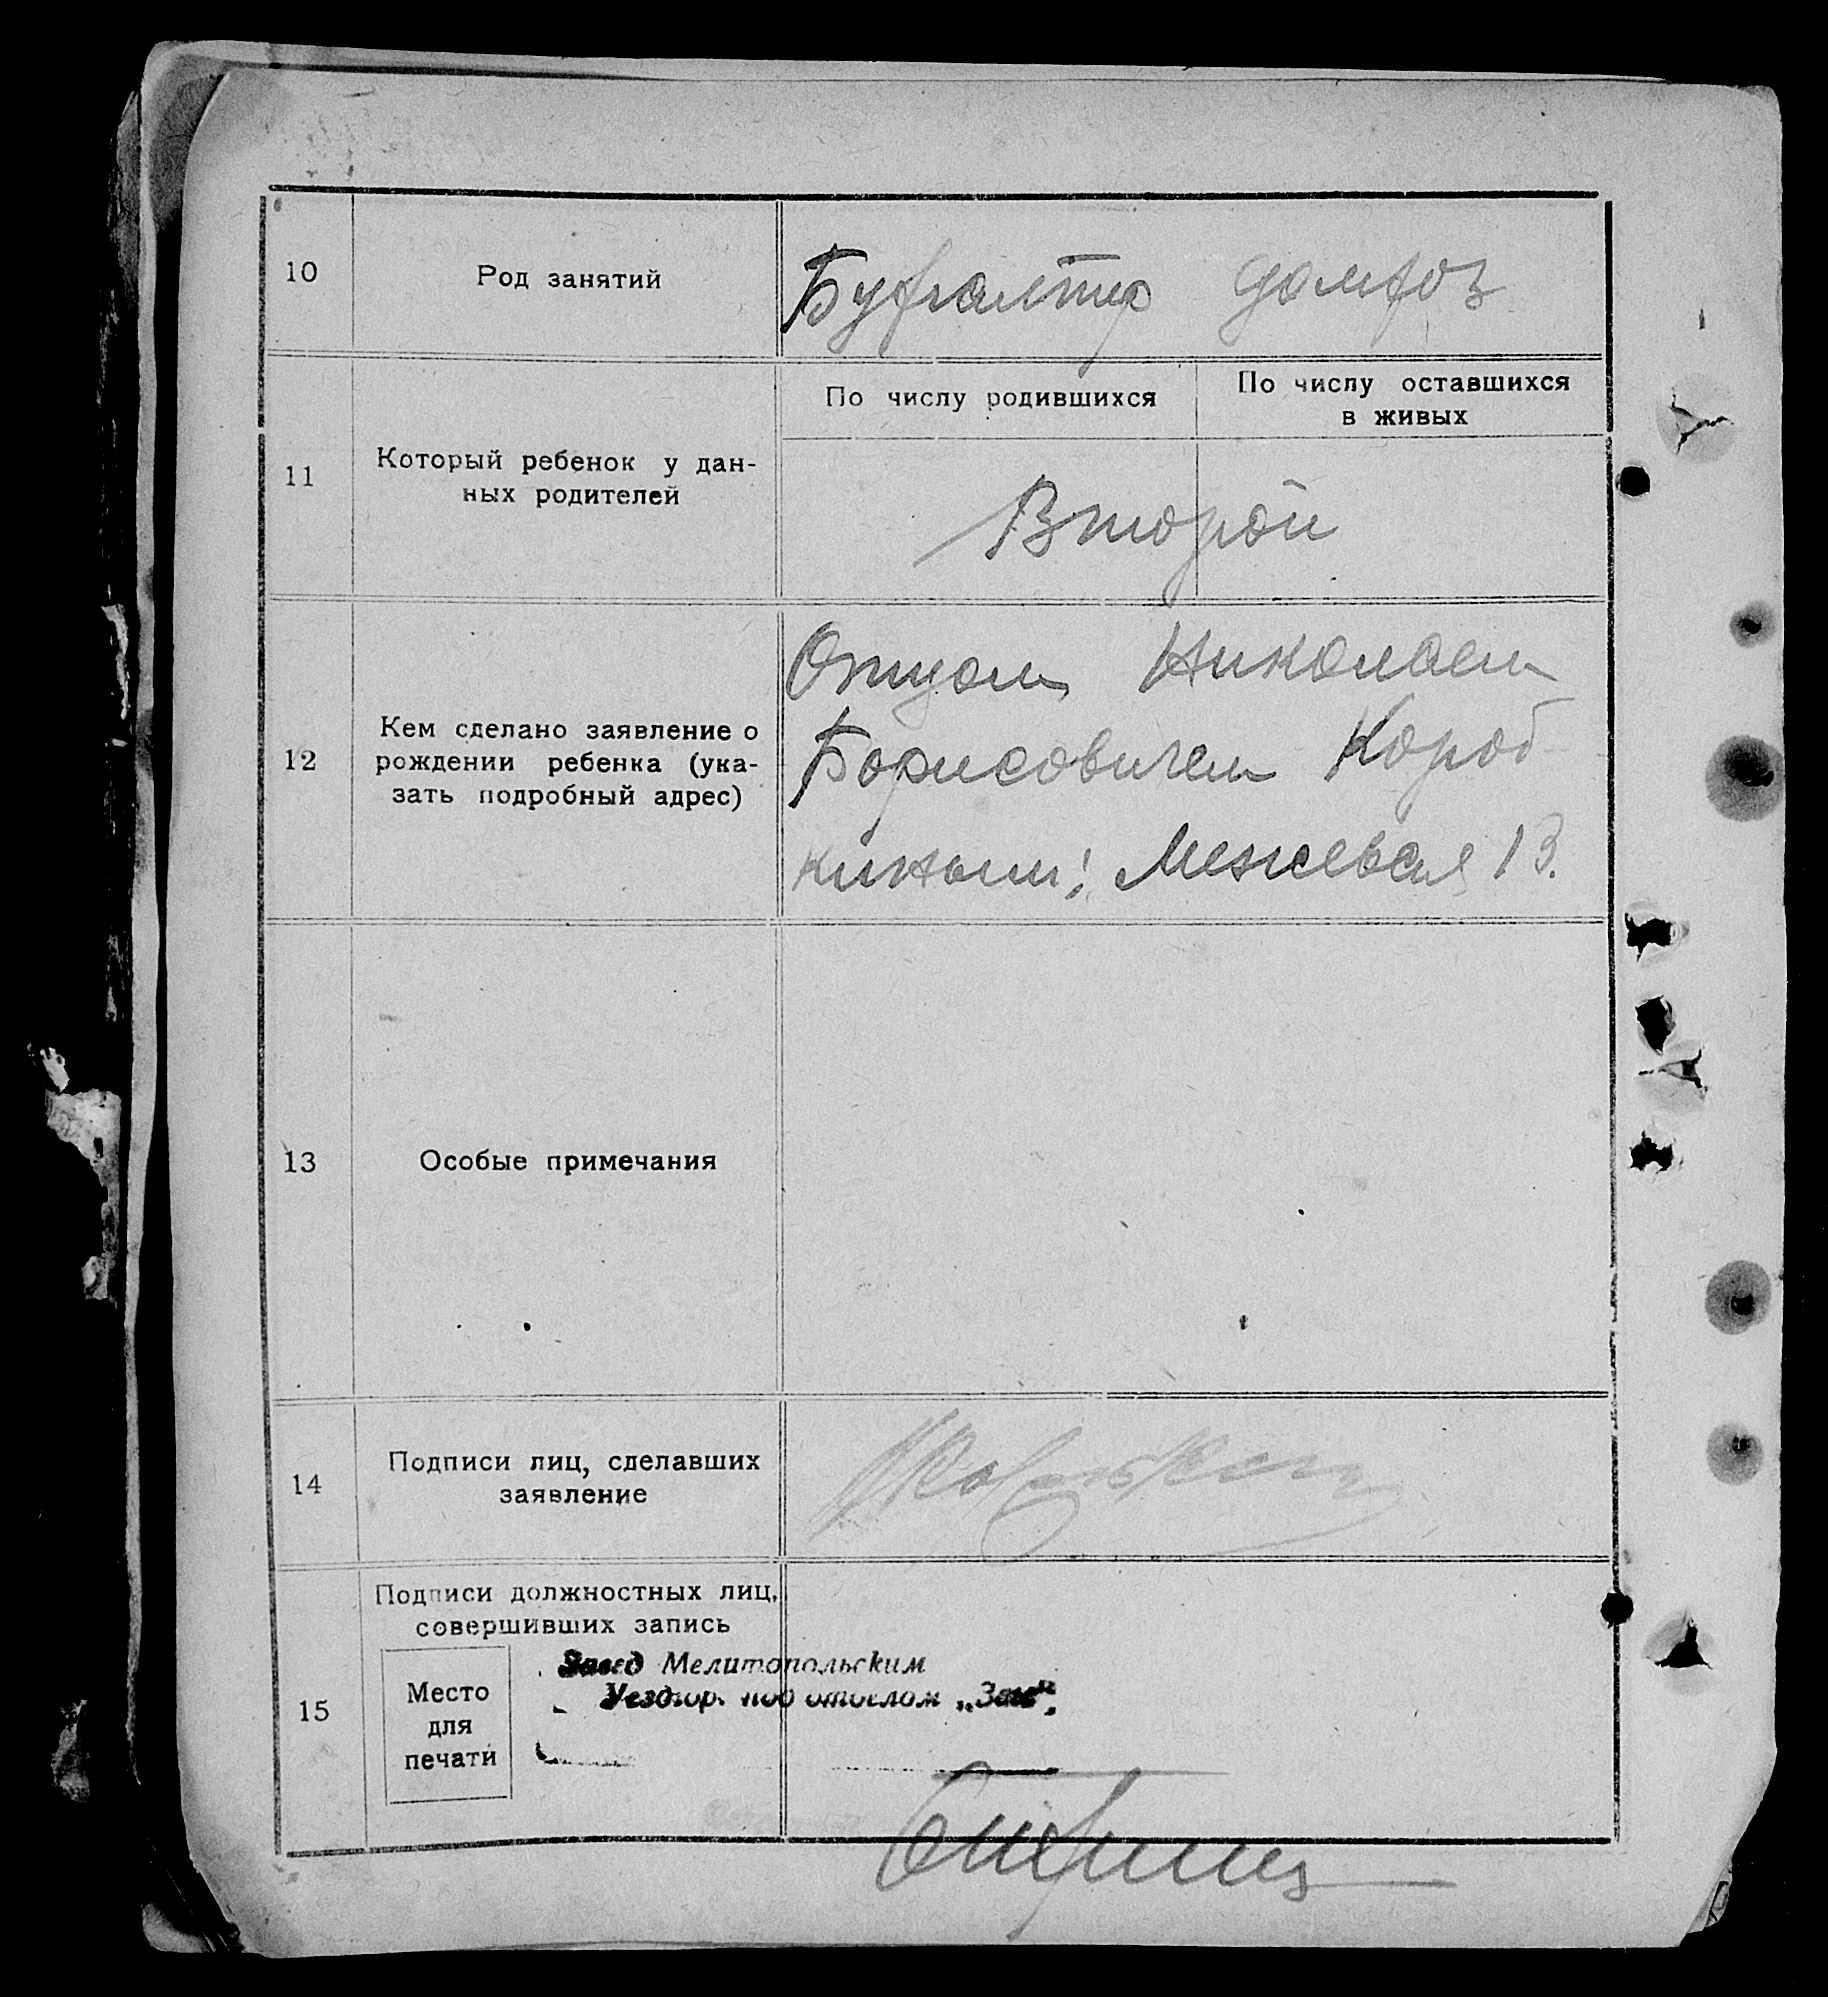 10
Род занятий
Бухгалтер домхоз
11
Который ребенок у дан-
ных родителей
По числу родившихся
По числу оставшихся
в живых
Второй
12
Кем сделано заявление о
рождении ребенка (ука-
зать подробный адрес)
Отцом Николаем
Борисовичем Короб
киным; Межевая 13.
13
Особые примечания
14
Подписи лиц, сделавших
заявление
15
Подписи должностных лиц,
совершивших запись
Место
для
печати
Завед Мелитопольским
Уездгор. под отделом „Загс“,